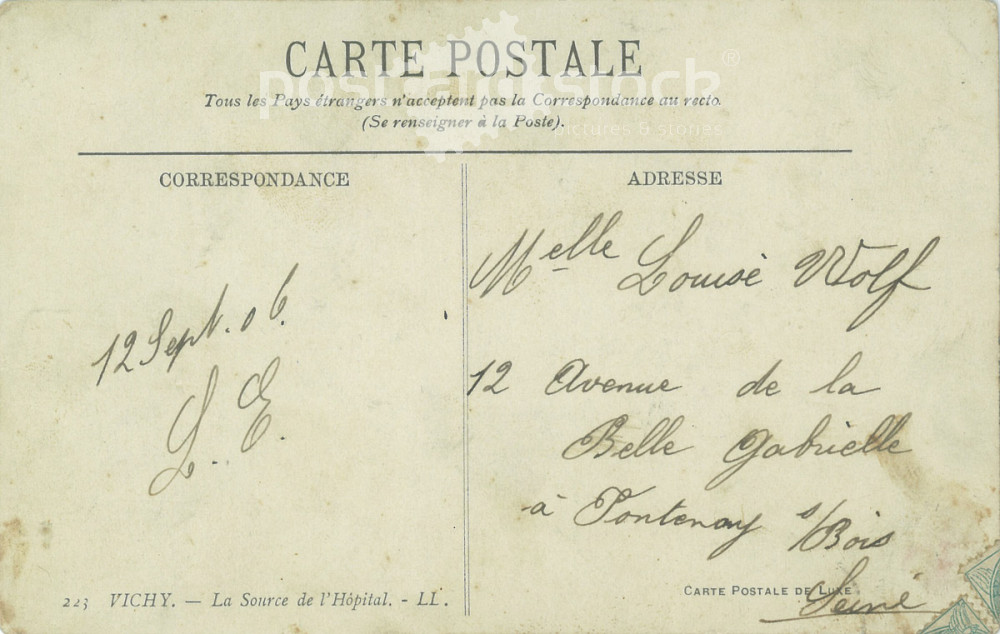 CARTE POSTALE
Tous les Pays étrangers n'acceptent pas la Correspondance au recto.
(Se renseigner à la Poste).
pictures & stories
CORRESPONDANCE
12 Sept. 06.
L. E.
223 VICHY. — La Source de l'Hôpital. - LL.
ADRESSE
Melle Louise Wolf
12 Avenue de la
Belle Gabrielle
à Fontenay s/Bois
Seine
CARTE POSTALE DE LUXE